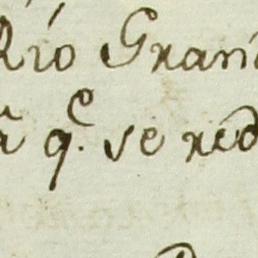 Río Gran
a q.e se red